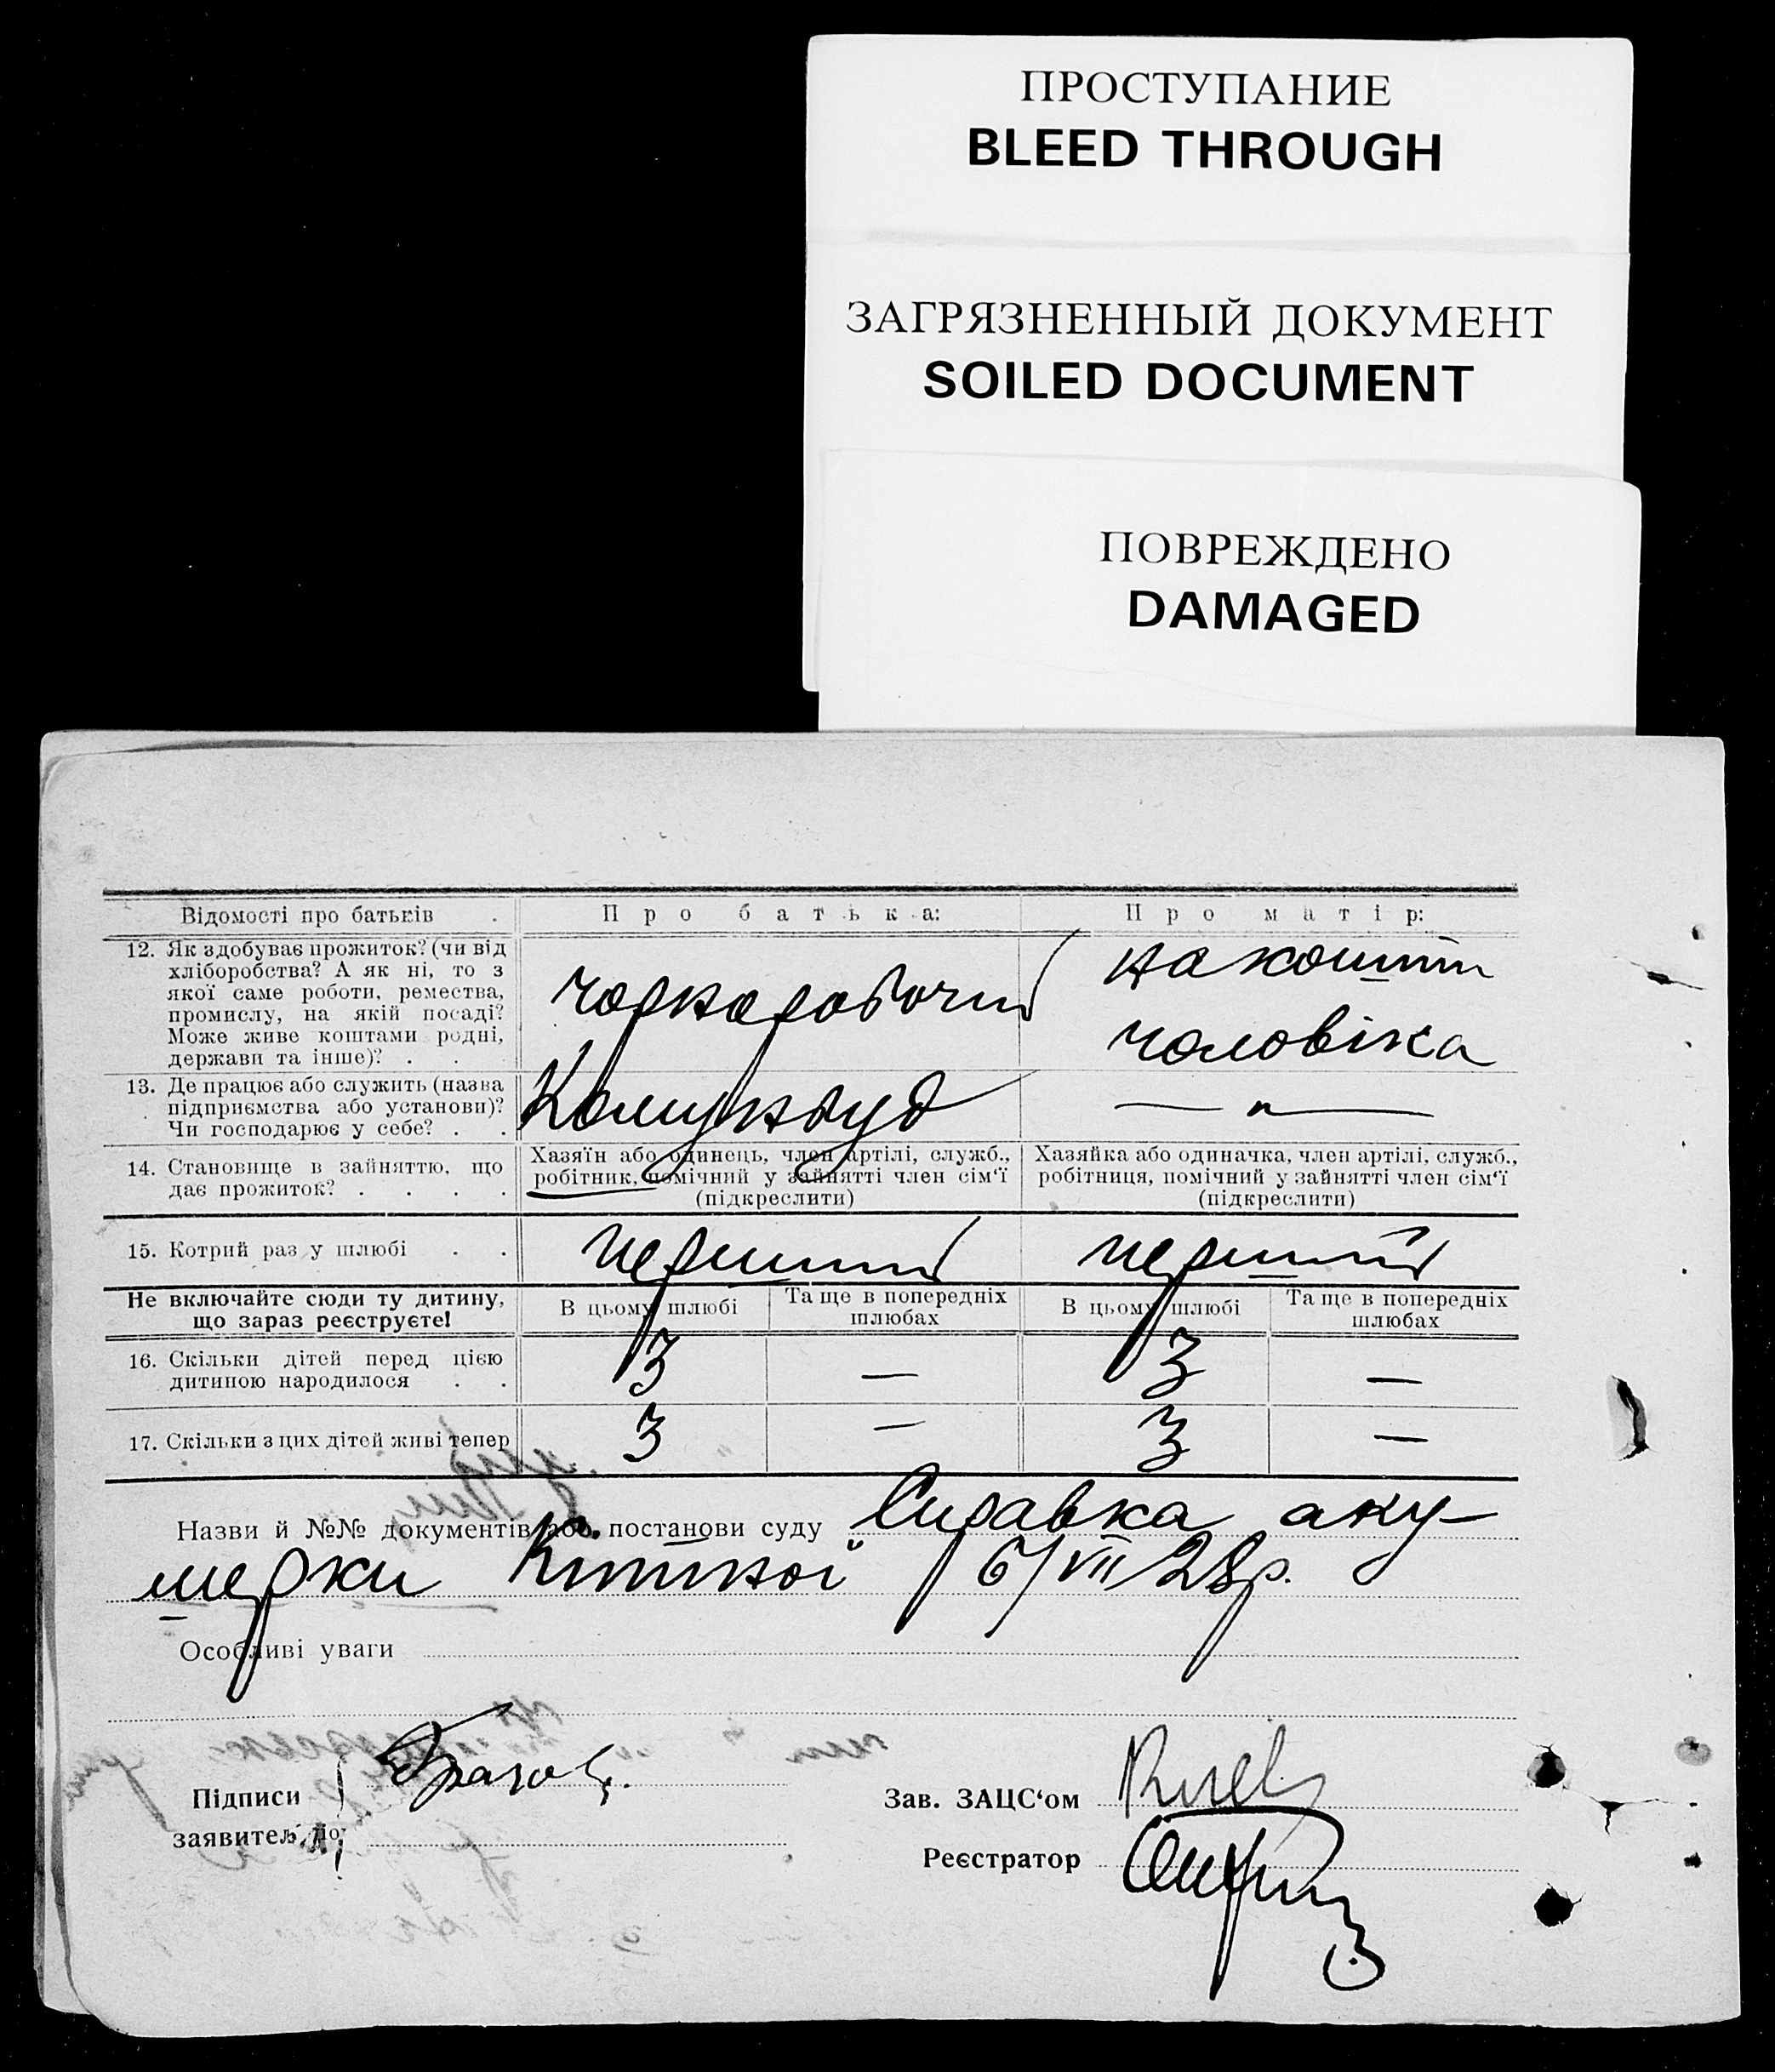 ПРОСТУПАНИЕ
BLEED THROUGH
ЗАГРЯЗНЕННЫЙ ДОКУМЕНТ
SOILED DOCUMENT
ПОВРЕЖДЕНО
DAMAGED
Відомості про батьків
Про батька:
Про матір:
12. Як здобуває прожиток? (чи від
хліборобства? А як ні, то з
якої саме роботи, ремества,
промислу, на якій посаді?
Може живе коштами родні,
держави та інше)? . . .
чорноробочий
на кошти
чоловіка
13. Де працює або служить (назва
підприємства або установи)?
Чи господарює у себе? . .
Комунбуд
— " —
14. Становище в зайняттю, що
дає прожиток? . . . .
Хазяїн або одинець, член артілі, служб.,
робітник, помічний у зайнятті член сім'ї
(підкреслити)
Хазяйка або одиначка, член артілі, служб.,
робітниця, помічний у зайнятті член сім'ї
(підкреслити)
15. Котрий раз у шлюбі . .
перший
перший
Не включайте сюди ту дитину,
що зараз реєструєте!
В цьому шлюбі
Та ще в попередніх
шлюбах
В цьому шлюбі
Та ще в попередніх
шлюбах
16. Скільки дітей перед цією
дитиною народилося . .
3 — 3 —
17. Скільки з цих дітей живі тепер
3 — 3 —
Назви й №№ документів або постанови суду Справка аку-
шерки 6/VII 28р.
Особливі уваги
Підписи
заявитель
Зав. ЗАЦС'ом
Реєстратор